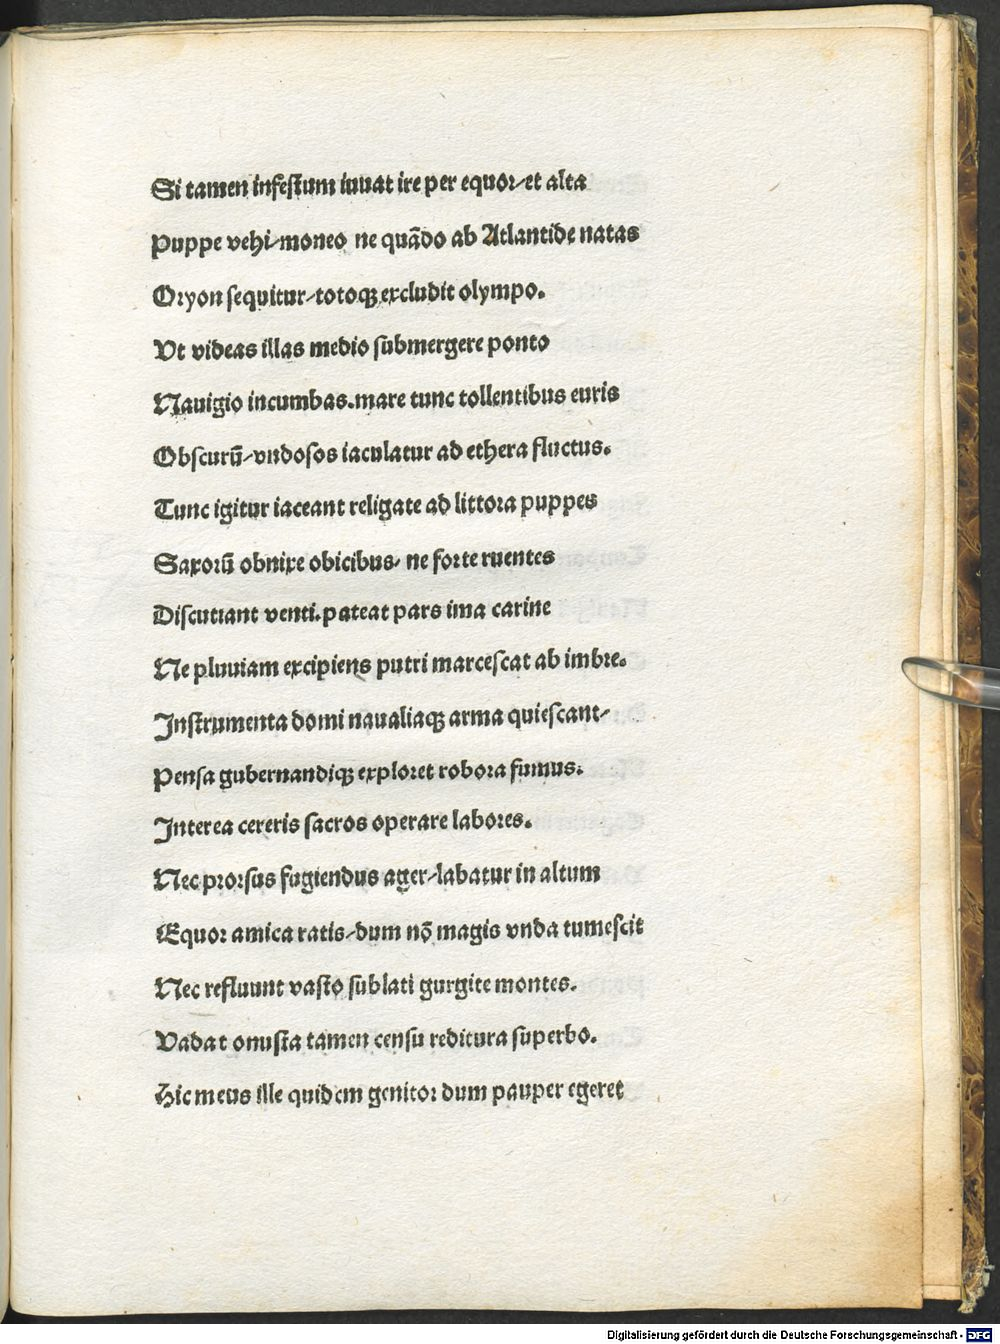 Si tamen infestum iuuat ire per equor/et alta
Puppe vehi/moneo ne quādo ab Atlantide natas
Oryon sequitur/totoqꝫ excludit olympo.
Vt videas illas medio submergere ponto
Nauigio incumbas.mare tunc tollentibus euris
Obscurū/vndosos iaculatur ad ethera fluctus.
Tunc igitur iaceant religate ad littora puppes
Saxorū obnixe obicibus/ ne forte ruentes
Discutiant venti.pateat pars ima carine
Ne pluuiam excipiens putri marcescat ab imbre.
Instrumenta domi naualiaqꝫ arma quiescant/
Pensa gubernandiqꝫ exploret robora fumus.
Interea cereris sacros operare labores.
Nec prorsus fugiendus ager/labatur in altum
Equor amica ratis/dum nō magis vnda tumescit
Nec refluunt vasto sublati gurgite montes.
Vadat onusta tamen censu reditura superbo.
Hic meus ille quidem genitor dum pauper egeret
Digitalisierung gefördert durch die Deutsche Forschungsgemeinschaft - DFG